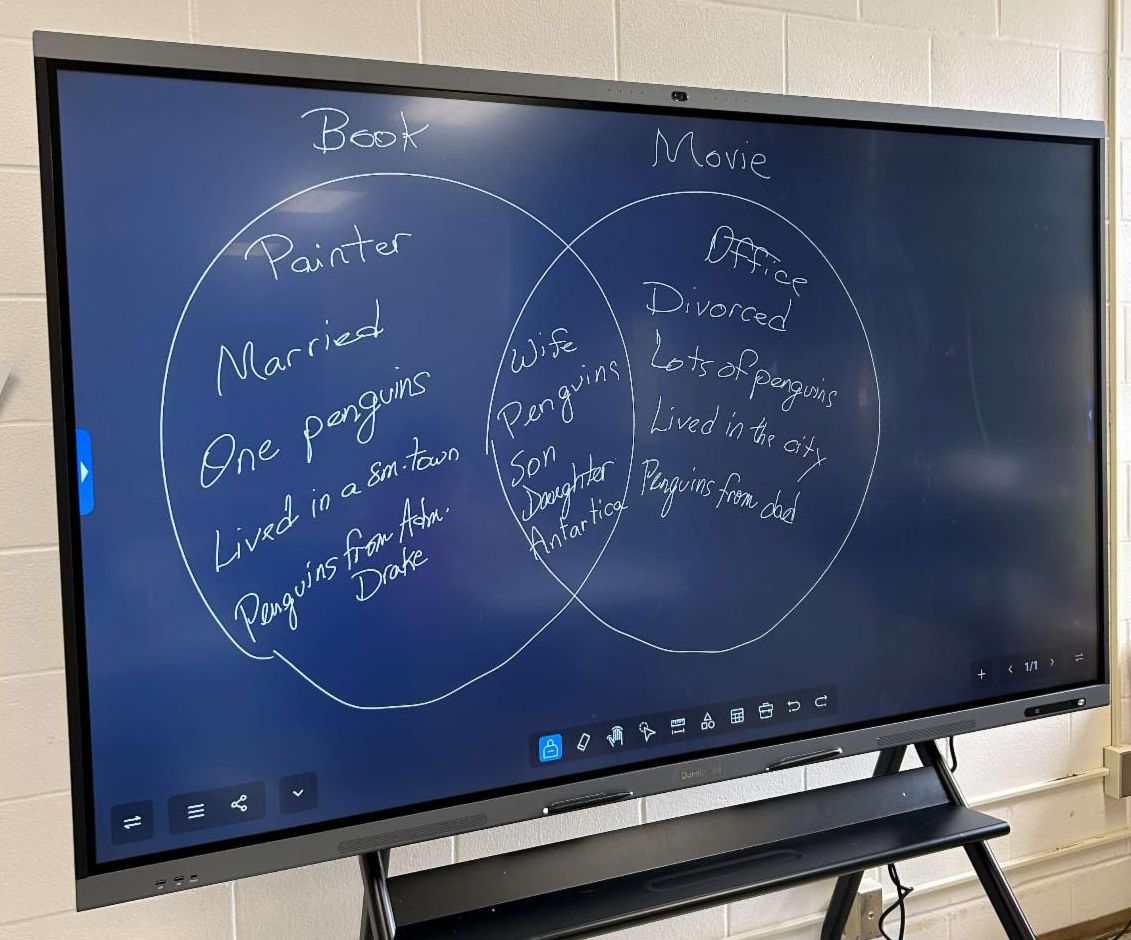 Book
Movie
Painter
Married
One penguins
Lived in a sm. town
Penguins from Adm.
Drake
Wife
Penguins
Son
Daughter
Antartica
Office
Divorced
Lots of penguins
Lived in the city
Penguins from dad
1/1